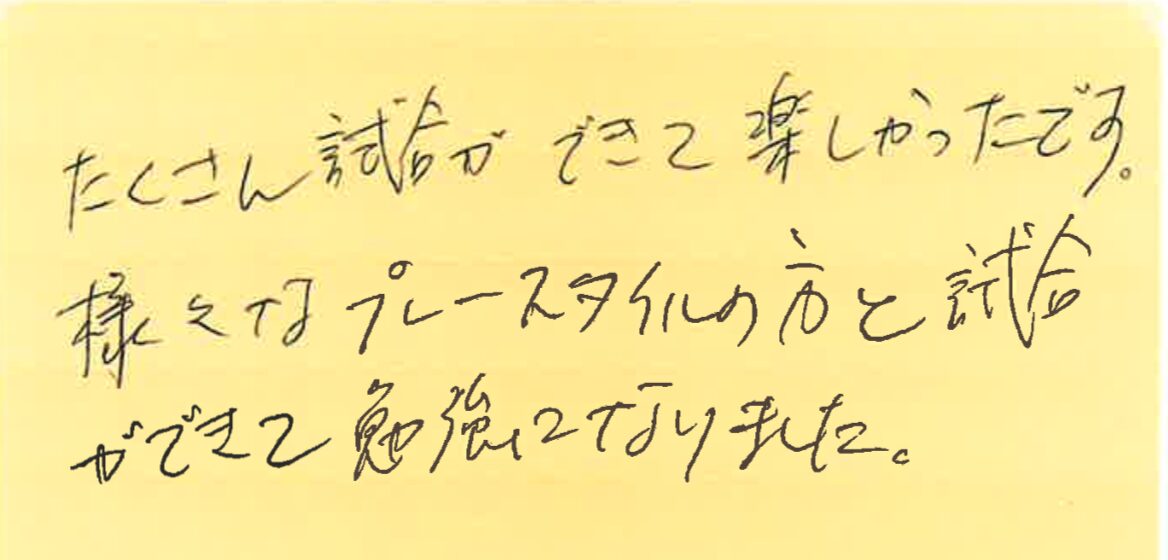 たくさん試合ができて楽しかったです。
様々なプレースタイルの方と試合
ができて勉強になりました。